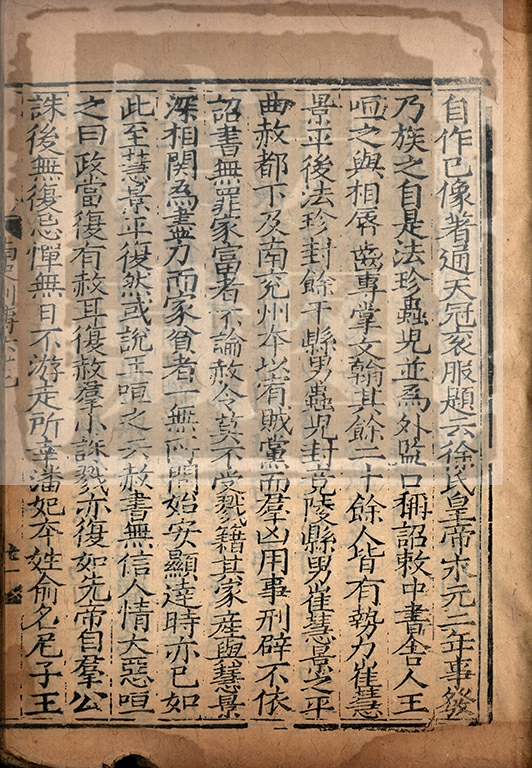 自作己像著通天冠衮服題云徐氏皇帝永元二年事發
乃族之自是法珍蟲兒並爲外監口稱詔敕中書舍人王
咺之與相脣齒專掌文翰其餘二十餘人皆有勢力崔慧
景平後法珍封餘干縣男蟲兒封竟陵縣男崔慧景之平
曲赦都下及南兖州本以宥賊黨而羣凶用事刑辟不依
詔書無罪家富者不論赦令莫不受戮籍其家産與慧景
深相関爲盡力而家貧者一無所問始安顯達時亦已如
此至慧景平復然或說王咺之云赦書無信人情大惡咺
之曰政當復有赦耳復赦羣小誅戮亦復如先帝自羣公
誅後無復忌憚無日不游走所幸潘妃本姓俞名尼子王